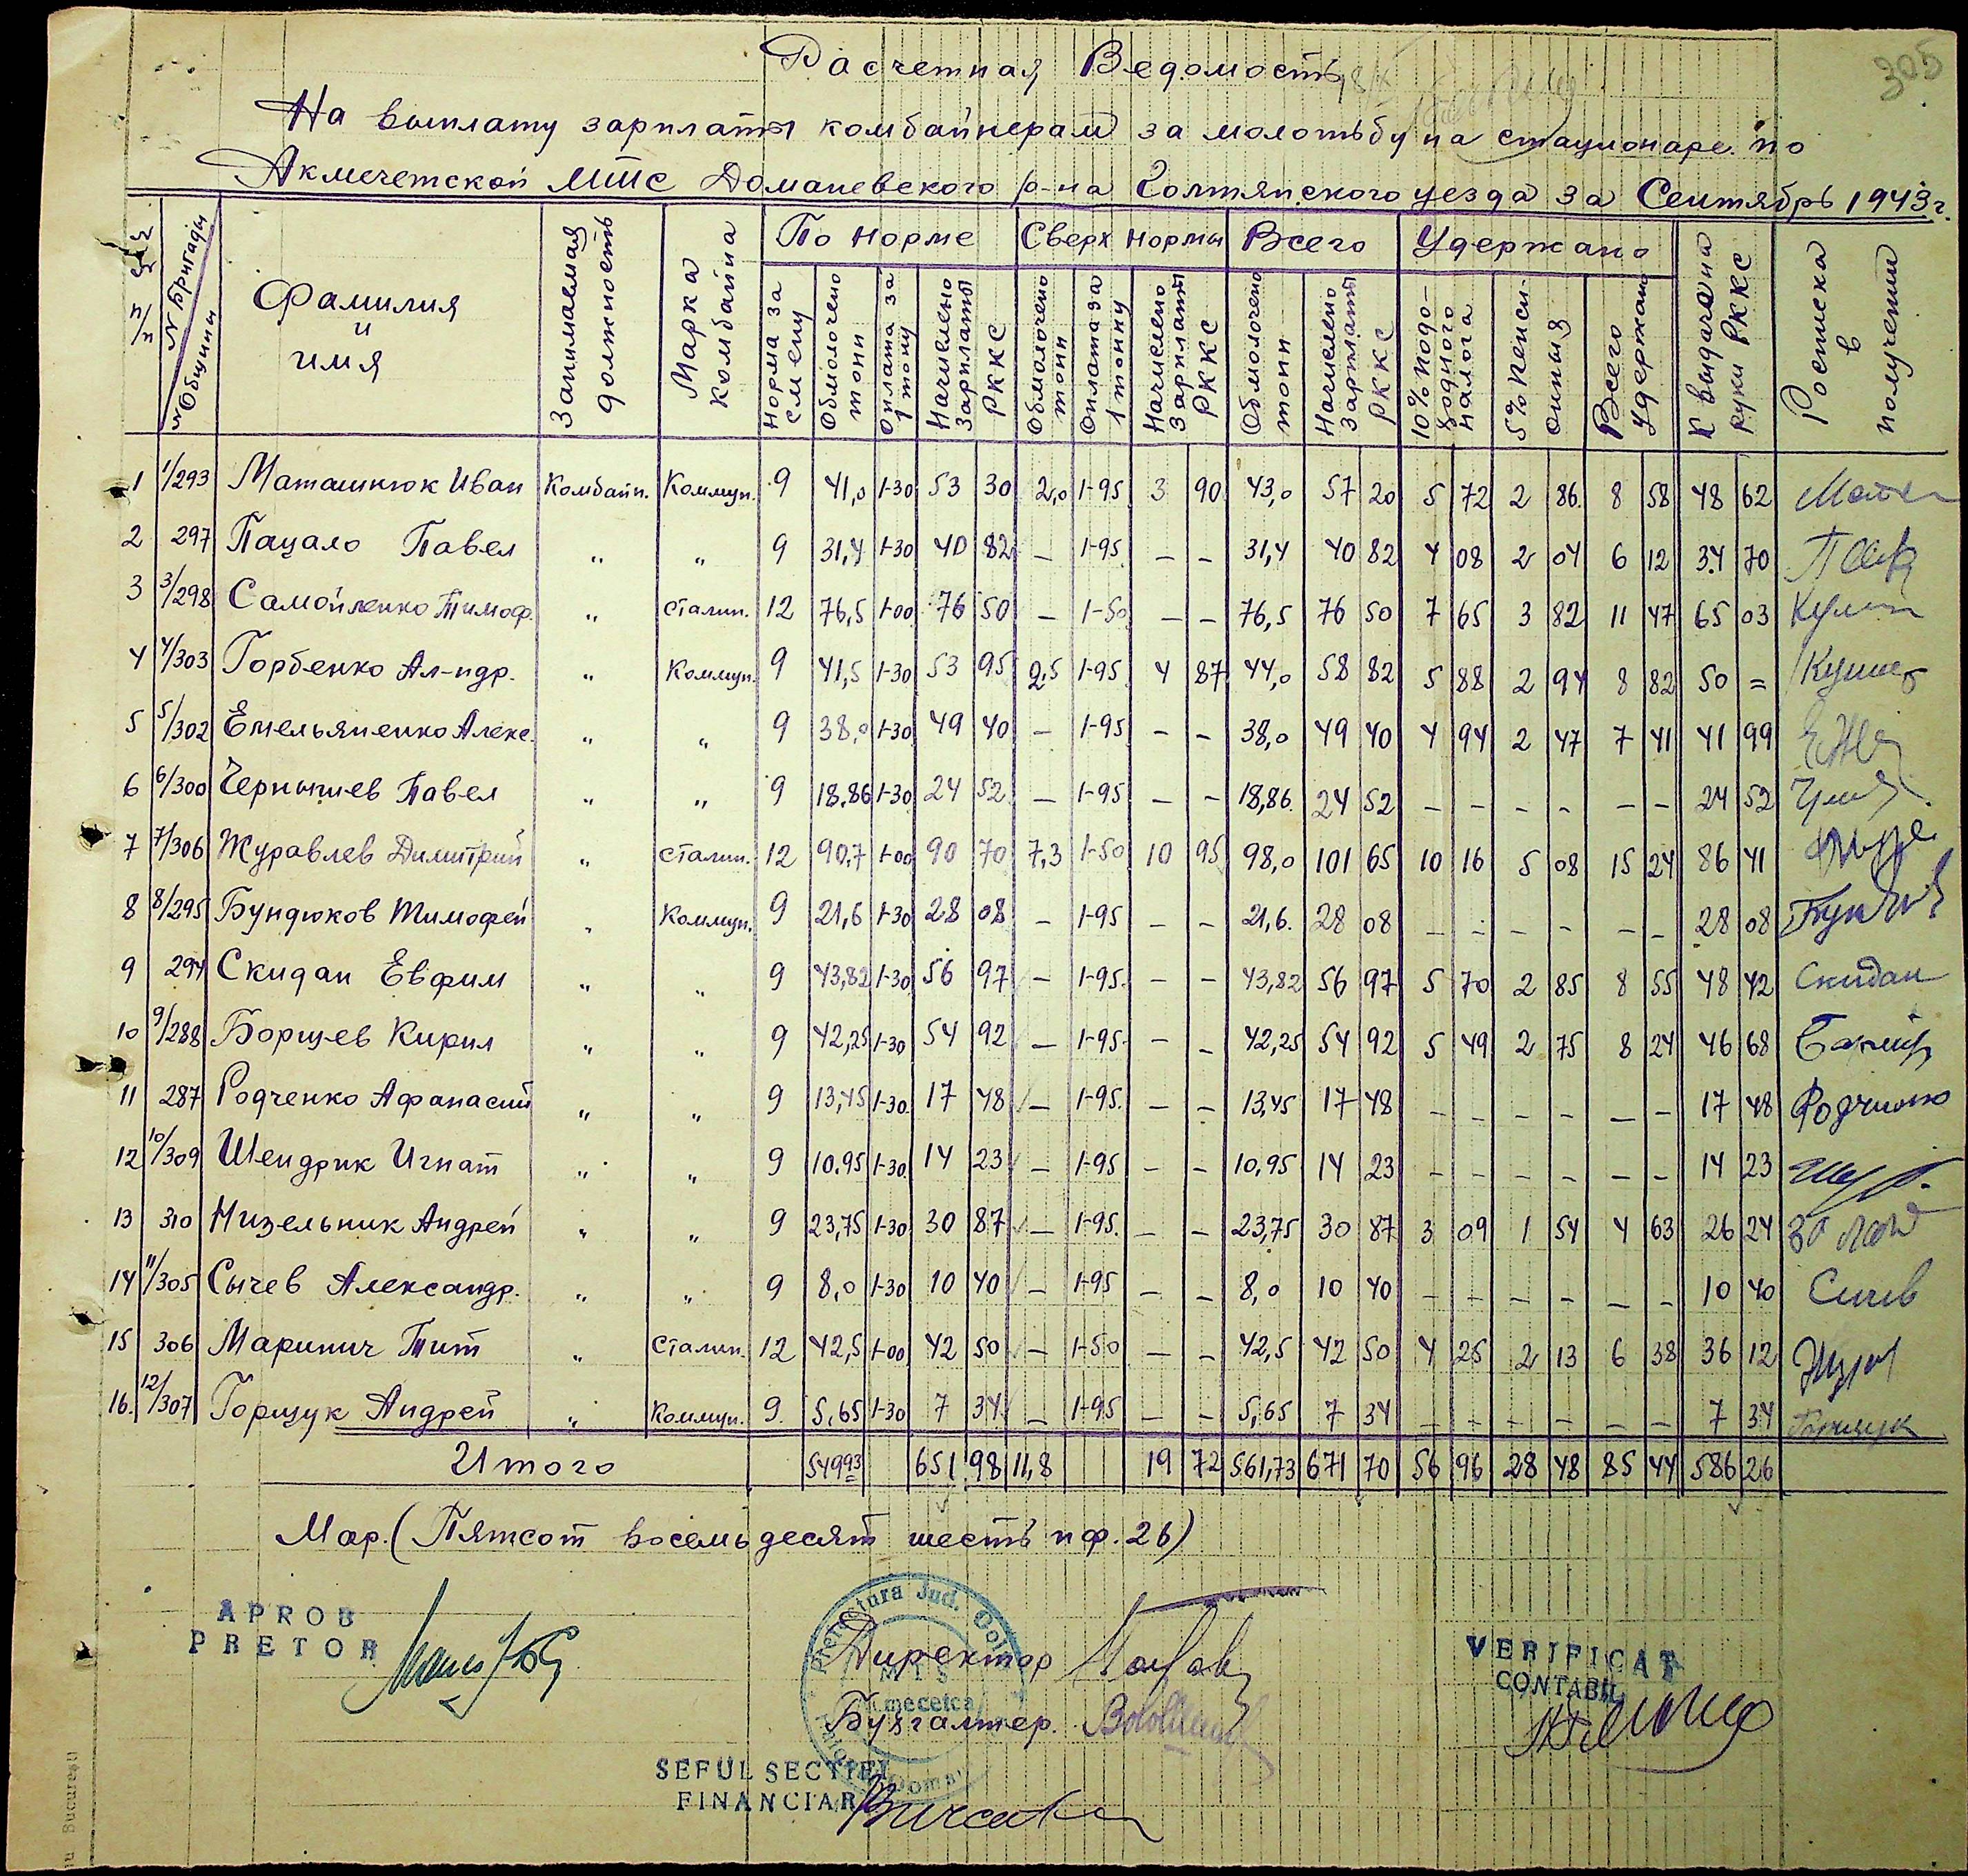 305
Расчетная Ведомость
На выплату зарплаты комбайнерам за молотьбу на стационаре по
Акмечетской МТС Доманевского р-на Голтянского уезда за Сентябрь 1943 г.
№№ п/п | № Бригады № Общины | Фамилия и имя | Занимаемая должность | Марка комбайна | По норме | Сверх нормы | Всего | Удержано | К выдаче на руки РККС | Росписка в получении
Норма за смену | Обмолочено тонн | Оплата за 1 тону | Начислено зарплаты РККС | Обмолочено тонн | Оплата за 1 тонну | Начислено зарплаты РККС | Обмолочено тонн | Начислено зарплаты РККС | 10% подоходного налога | 5% пенсионный | Всего удержан
1 1/293 Маташнюк Иван Комбайн. Коммун. 9 41,0 1-30 53 30 2,0 1-95 3 90 43,0 57 20 5 72 2 86 8 58 48 62
2 297 Пацало Павел „ „ 9 31,4 1-30 40 82 – 1-95 – – 31,4 40 82 4 08 2 04 6 12 34 70
3 3/298 Самойленко Тимоф. „ Сталин. 12 76,5 1-00 76 50 – 1-50 – – 76,5 76 50 7 65 3 82 11 47 65 03
4 4/303 Горбенко Ал-ндр. „ Коммун. 9 41,5 1-30 53 95 2,5 1-95 4 87 44,0 58 82 5 88 2 94 8 82 50 =
5 5/302 Емельяненко Алекс. „ „ 9 38,0 1-30 49 40 – 1-95 – – 38,0 49 40 4 94 2 47 7 41 41 99
6 6/300 Чернышев Павел „ „ 9 18.86 1-30 24 52 – 1-95 – – 18,86 24 52 – – – – – – 24 52
7 7/306 Журавлев Димитрий „ Сталин. 12 90,7 1-00 90 70 7,3 1-50 10 95 98,0 101 65 10 16 5 08 15 24 86 41
8 8/295 Бундюков Тимофей „ Коммун. 9 21,6 1-30 28 08 – 1-95 – – 21,6. 28 08 – – – – – – 28 08
9 294 Скидан Евфим „ „ 9 43,82 1-30 56 97 – 1-95. – – 43,82 56 97 5 70 2 85 8 55 48 42 Скидан
10 9/288 Борщев Кирил „ „ 9 42,25 1-30 54 92 – 1-95. – – 42,25 54 92 5 49 2 75 8 24 46 68
11 287 Родченко Афанасий „ „ 9 13,45 1-30. 17 48 – 1-95. – – 13,45 17 48 – – – – – – 17 48
12 10/309 Шендрик Игнат „ „ 9 10.95 1-30. 14 23 – 1-95 – – 10,95 14 23 – – – – – – 14 23
13 310 Низельник Андрей „ „ 9 23,75 1-30 30 87 – 1-95. – – 23,75 30 87 3 09 1 54 4 63 26 24
14 11/305 Сычев Александр. „ „ 9 8,0 1-30 10 40 – 1-95 – – 8,0 10 40 – – – – – – 10 40
15 306 Маринич Тит „ Сталин. 12 42,5 1-00 42 50 – 1-50 – – 42,5 42 50 4 25 2 13 6 38 36 12
16. 12/307 Горщук Андрей „ Коммун. 9. 5,65 1-30 7 34 – 1-95 – – 5,65 7 34 – – – – – – 7 34
Итого 549 93 651 98 11,8 19 72 561,73 671 70 56 96 28 48 85 44 586 26
Мар. (Пятсот восемьдесят шесть пф. 26)
APROB
PRETOR
Prefectura Jud. Golta
Директор
Бухгалтер.
VERIFICAT
CONTABIL
SEFUL SECTIEI
FINANCIAR
Bucureşti